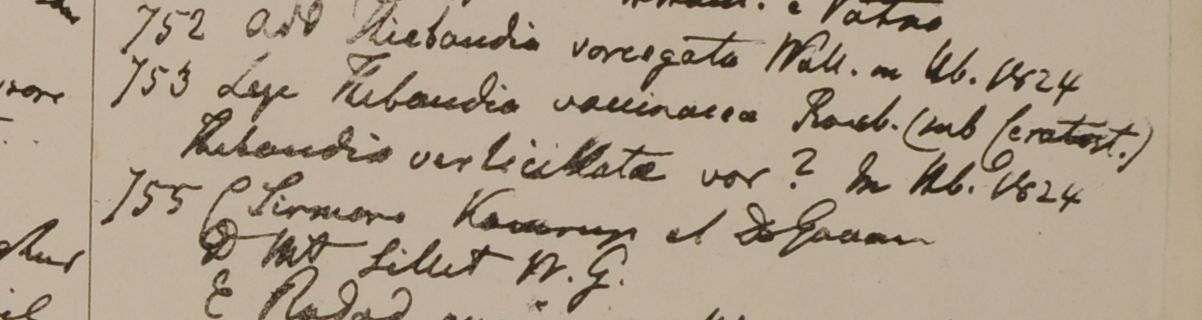 752 add Thiebaudia variegata Wall. in Hb. 1824
753 Lege Thibaudia vacciniacea Roxb. (sub Ceratost.)
Thibaudia verticillata var? In Hb. 1824
755 C Sirmore Kamrup et De
D Mt Sillet W. G.
E